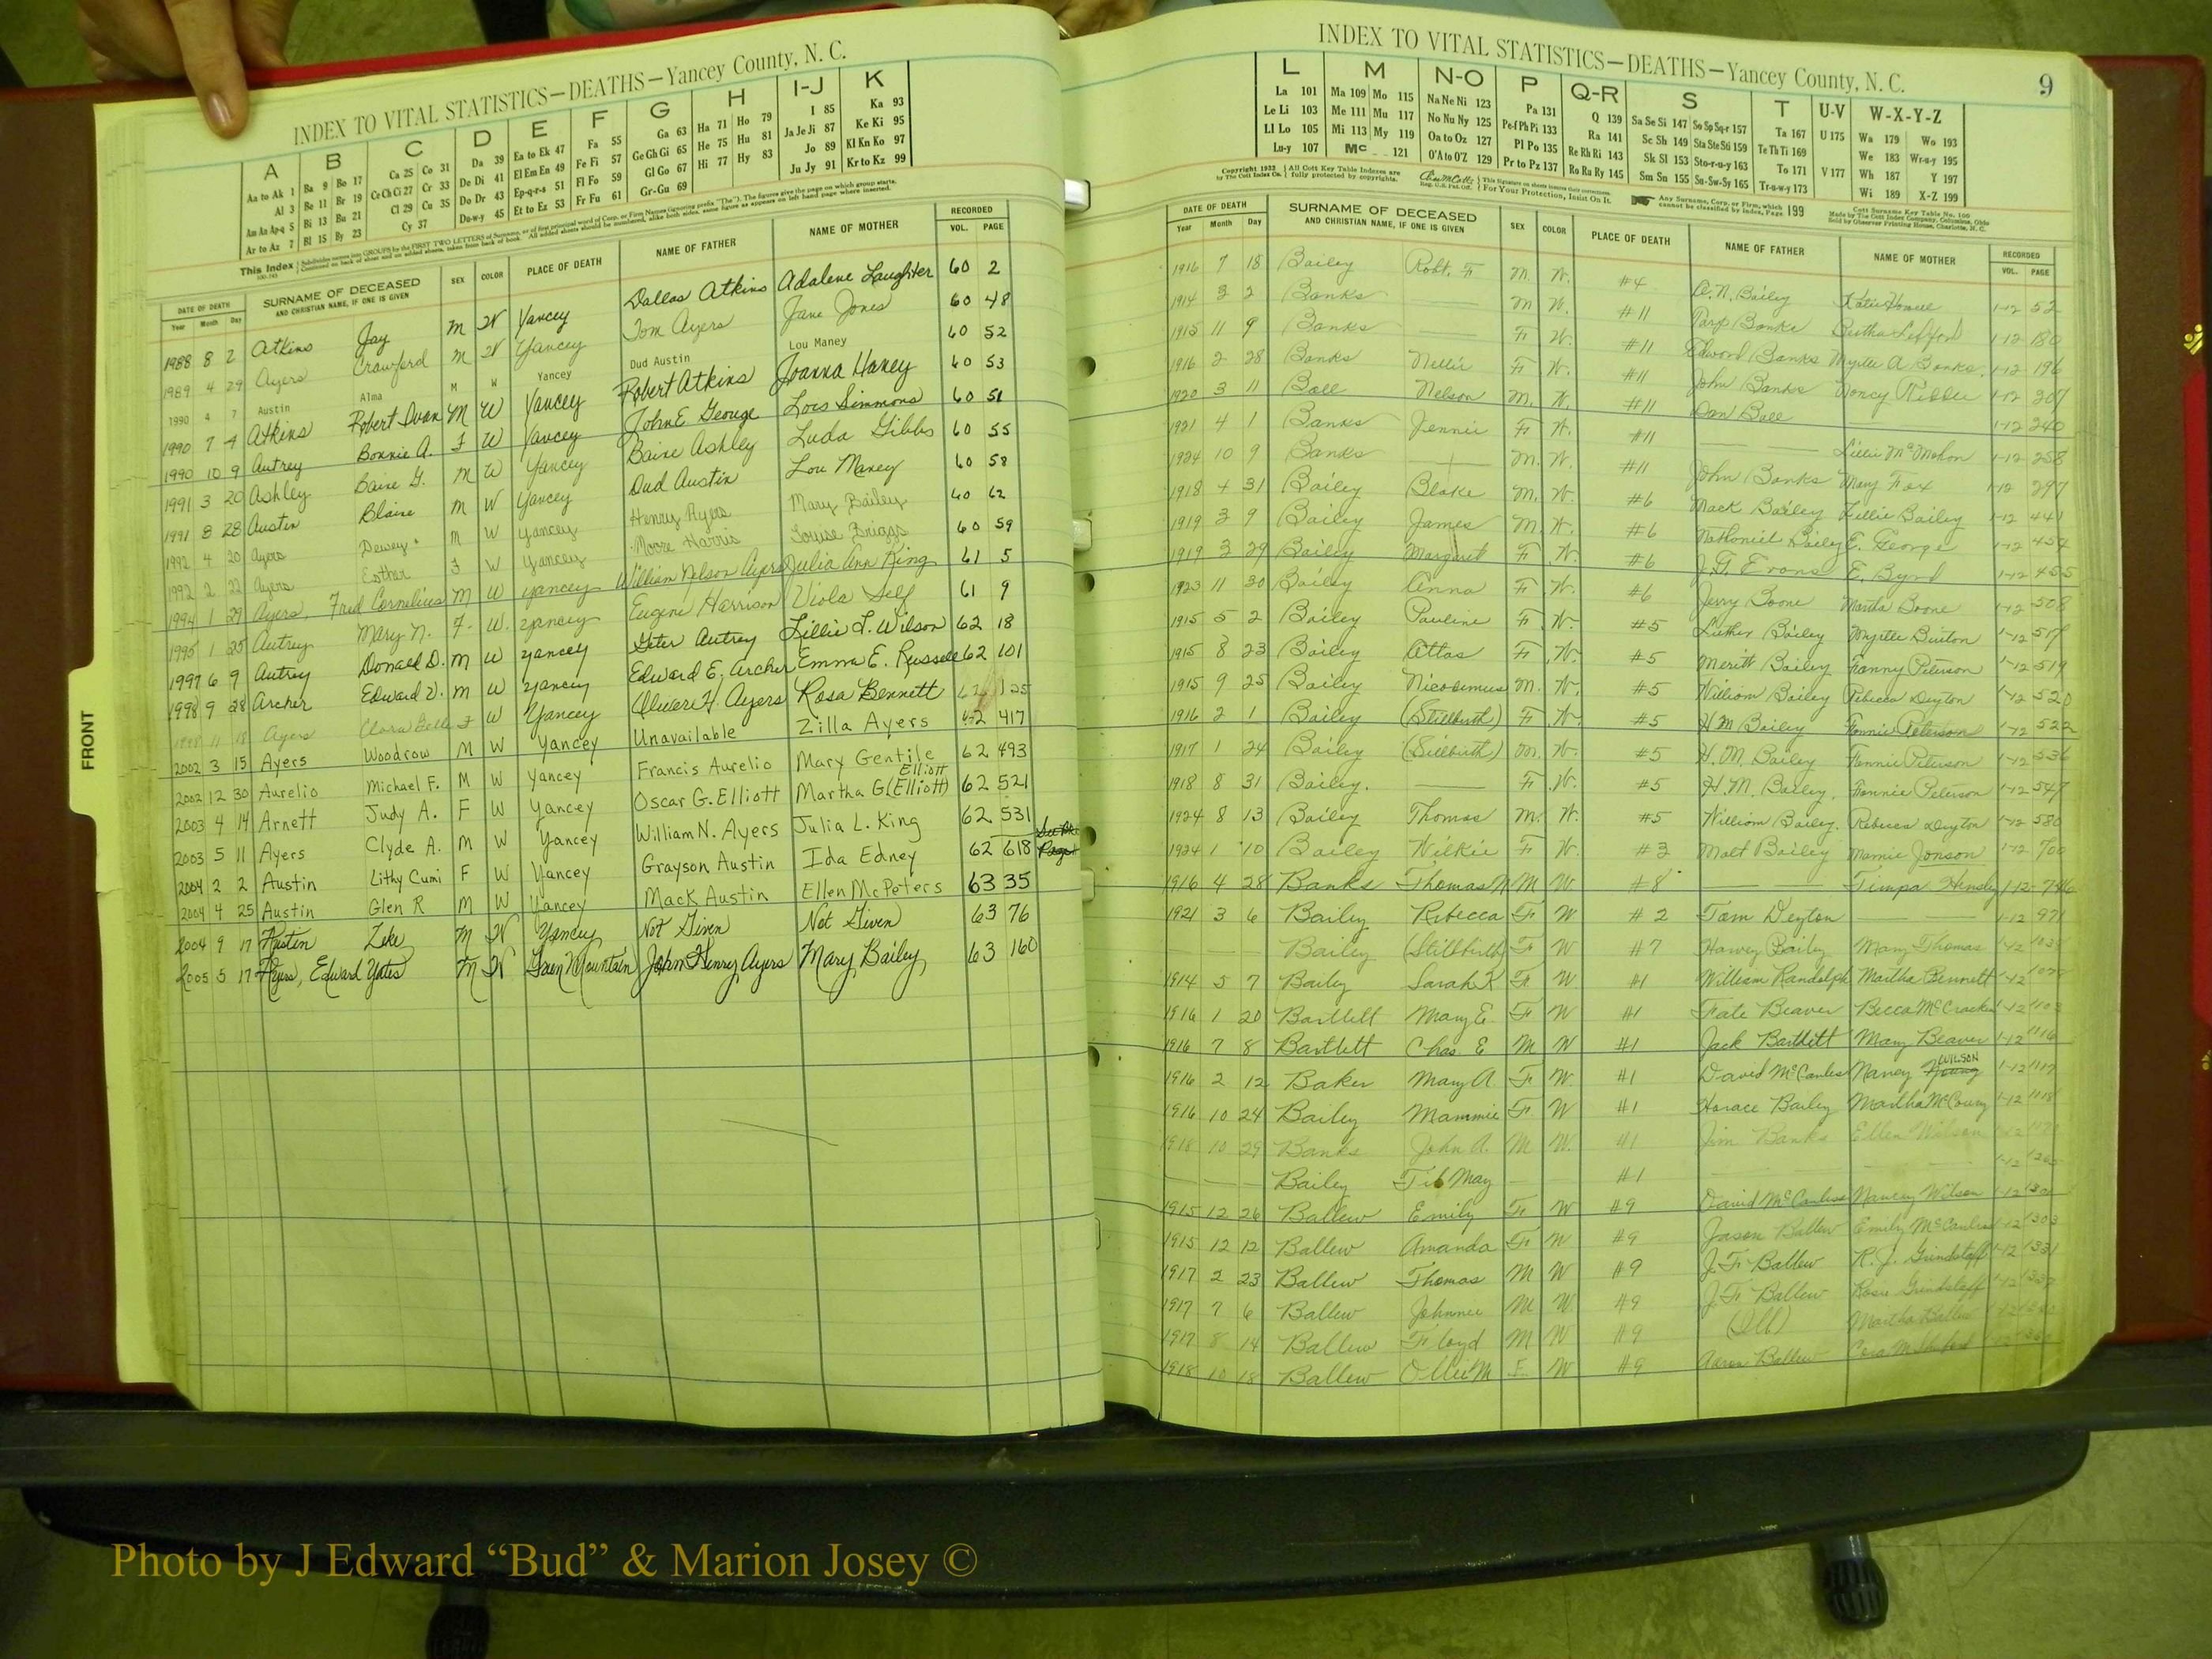 INDEX TO VITAL STATISTICS—DEATHS—Yancey County, N. C.
A B C D E F G H I-J K
Aa to Ak 1 Ba 9 Bo 17 Ca 25 Co 31 Da 39 Ea to Ek 47 Fa 55 Ga 63 Ha 71 Ho 79 I 85 Ka 93
Al 3 Be 11 Br 19 Ce Ch Ci 27 Cr 33 De Di 41 El Em En 49 Fe Fi 57 Ge Gh Gi 65 He 75 Hu 81 Ja Je Ji 87 Ke Ki 95
Am An Ap-q 5 Bi 13 Bu 21 Cl 29 Cu 35 Do Dr 43 Ep-q-r-s 51 Fl Fo 59 Gl Go 67 Hi 77 Hy 83 Jo 89 Kl Kn Ko 97
Ar to Az 7 Bl 15 By 23 Cy 37 Du-w-y 45 Et to Ez 53 Fr Fu 61 Gr-Gu 69 Ju Jy 91 Kr to Kz 99
This Index
DATE OF DEATH SURNAME OF DECEASED AND CHRISTIAN NAME, IF ONE IS GIVEN SEX COLOR PLACE OF DEATH NAME OF FATHER NAME OF MOTHER RECORDED
Year Month Day VOL. PAGE
1988 8 2 Atkins Jay M W Yancey Dallas Atkins Adalene Laughter 60 2
1989 4 29 Ayers Crawford M W Yancey Tom Ayers Jane Jones 60 48
1990 4 7 Austin Alma M W Yancey Dud Austin Lou Maney 60 52
1990 7 4 Atkins Robert Ivan M W Yancey Robert Atkins Joanna Haney 60 53
1990 10 9 Autrey Bonnie A. F W Yancey John E George Lois Simmons 60 51
1991 3 20 Ashley Baine G. M W Yancey Baine Ashley Luda Gibbs 60 55
1991 8 28 Austin Blaine M W Yancey Dud Austin Lou Maney 60 58
1992 4 20 Ayers Dewey M W Yancey Henry Ayers Mary Bailey 60 62
1992 2 22 Ayers Esther F W Yancey Moore Harris Louise Briggs 60 59
1994 1 29 Ayers, Fred Cornelius M W Yancey William Nelson Ayers Julia Ann King 61 5
1995 1 25 Autrey Mary N. F. W. Yancey Eugene Harrison Viola Self 61 9
1997 6 9 Autrey Donald D. M W Yancey Geter Autrey Lillie L. Wilson 62 18
1998 9 28 Archer Edward V. M W Yancey Edward E. Archer Emma E. Russell 62 101
1998 11 18 Ayers Clara Belle F W Yancey Oliver H. Ayers Rosa Bennett 62 125
2002 3 15 Ayers Woodrow M W Yancey Unavailable Zilla Ayers 62 417
2002 12 30 Aurelio Michael F. M W Yancey Francis Aurelio Mary Gentile 62 493
2003 4 14 Arnett Judy A. F W Yancey Oscar G. Elliott Martha G (Elliott) Elliott 62 521
2003 5 11 Ayers Clyde A. M W Yancey William N. Ayers Julia L. King 62 531
2004 2 2 Austin Lithy Cumi F W Yancey Grayson Austin Ida Edney 62 618
2004 4 25 Austin Glen R M W Yancey Mack Austin Ellen McPeters 63 35
2004 9 17 Austin Zeke M W Yancey Not Given Not Given 63 76
2005 5 17 Ayers, Edward Yates M W Green Mountain John Henry Ayers Mary Bailey 63 160
FRONT
INDEX TO VITAL STATISTICS—DEATHS—Yancey County, N. C. 9
L M N-O P Q-R S T U-V W-X-Y-Z
La 101 Ma 109 Mo 115 Na Ne Ni 123 Pa 131 Q 139 Sa Se Si 147 So Sp Sq-r 157 Ta 167 U 175 Wa 179 Wo 193
Le Li 103 Me 111 Mu 117 No Nu Ny 125 Pe-f Ph Pi 133 Ra 141 Sc Sh 149 Sta Ste Sti 159 Te Th Ti 169 We 183 Wr-u-y 195
Ll Lo 105 Mi 113 My 119 Oa to Oz 127 Pl Po 135 Re Rh Ri 143 Sk Sl 153 Sto-r-u-y 163 To 171 V 177 Wh 187 Y 197
Lu-y 107 Mc 121 O'A to O'Z 129 Pr to Pz 137 Ro Ru Ry 145 Sm Sn 155 Su-Sw-Sy 165 Tr-u-w-y 173 Wi 189 X-Z 199
Copyright 1932 by The Cott Index Co. All Cott Key Table Indexes are fully protected by copyrights. For Your Protection, Insist On It. Any Surname, Corp. or Firm, which cannot be classified by index, Page 199
DATE OF DEATH SURNAME OF DECEASED AND CHRISTIAN NAME, IF ONE IS GIVEN SEX COLOR PLACE OF DEATH NAME OF FATHER NAME OF MOTHER RECORDED
Year Month Day VOL. PAGE
1916 7 18 Bailey Robt. F M. W. #4 Bailey 1-12 52
1914 3 2 Banks M W. #11 Banks 1-12 180
1915 11 9 Banks F. W. #11 Edward Banks Myrtle A Banks 1-12 196
1916 2 28 Banks Nellie F. W. #11 John Banks Nancy 1-12 207
1920 3 11 Ball Nelson M. W. #11 Dan Ball 1-12 240
1921 4 1 Banks Jennie F. W. #11 Lillie McMahon 1-12 258
1924 10 9 Banks M. W. #11 John Banks Mary Fox 1-12 297
1918 4 31 Bailey Blake M. W. #6 Mack Bailey Lillie Bailey 1-12 441
1919 3 9 Bailey James M. W. #6 Nathaniel Bailey E. George 1-12 454
1919 3 29 Bailey Margaret F. W. #6 J. F. Evans E. Byrd 1-12 455
1923 11 30 Bailey Anna F. W. #6 Jerry Boone Martha Boone 1-12 508
1915 5 2 Bailey Pauline F. W. #5 Luther Bailey Myrtle Burton 1-12
1915 8 23 Bailey Attas F. W. #5 Meritt Bailey Fanny Peterson 1-12 519
1915 9 25 Bailey Nicodemus M. W. #5 William Bailey Rebecca Deyton 1-12 520
1916 2 1 Bailey (Stillbirth) F. W. #5 H M Bailey Fonnie Peterson 1-12 522
1917 1 24 Bailey (Stillbirth) M. W. #5 H. M. Bailey Fonnie Peterson 1-12 536
1918 8 31 Bailey. F. W. #5 H. M. Bailey. Fonnie Peterson 1-12 547
1924 8 13 Bailey Thomas M. W. #5 William Bailey. Rebecca Deyton 1-12 580
1924 1 10 Bailey Wilkie F W. #3 Malt Bailey Mamie Jonson 1-12 700
1916 4 28 Banks Thomas N M W. #8 Timpa Hensley 1-12- 746
1921 3 6 Bailey Rebecca F W #2 Tom Deyton 1-12 971
Bailey (Stillbirth) F W #7 Harvey Bailey Mary Thomas 1-12
1914 5 7 Baily Sarah K F. W #1 William Randolph Martha Bennett 1-12
1916 1 20 Bartlett Mary E F W #1 Fate Beaver Becca McCracken 1-12 1103
1916 7 8 Bartlett Chas. E M W #1 Jack Bartlett Mary Beaver 1-12 1116
1916 2 12 Baker Mary A. F W. #1 David McCanless Nancy WILSON 1-12 1117
1916 10 24 Bailey Mammie F W #1 Horace Bailey Martha McCoury 1-12 1118
1918 10 29 Banks John A. M W. #1 Jim Banks Ellen Wilson 1-12
Bailey Tib May #1 1-12
1915 12 26 Ballew Emily F W #9 David McCanless Nancy Wilson 1-12
1915 12 12 Ballew Amanda F W #9 Jason Ballew Emily McCanless 1-12 1303
1917 2 23 Ballew Thomas M W #9 J. F. Ballew R. J. Grindstaff 1-12 1331
1917 7 6 Ballew Johnnie M W #9 J. F. Ballew Rosie Grindstaff
1917 8 14 Ballew Floyd M W #9 (Ill) Martha Ballew
1918 10 18 Ballew Ollie M F W #9 Aaron Ballew Cora
Photo by J Edward “Bud” & Marion Josey ©